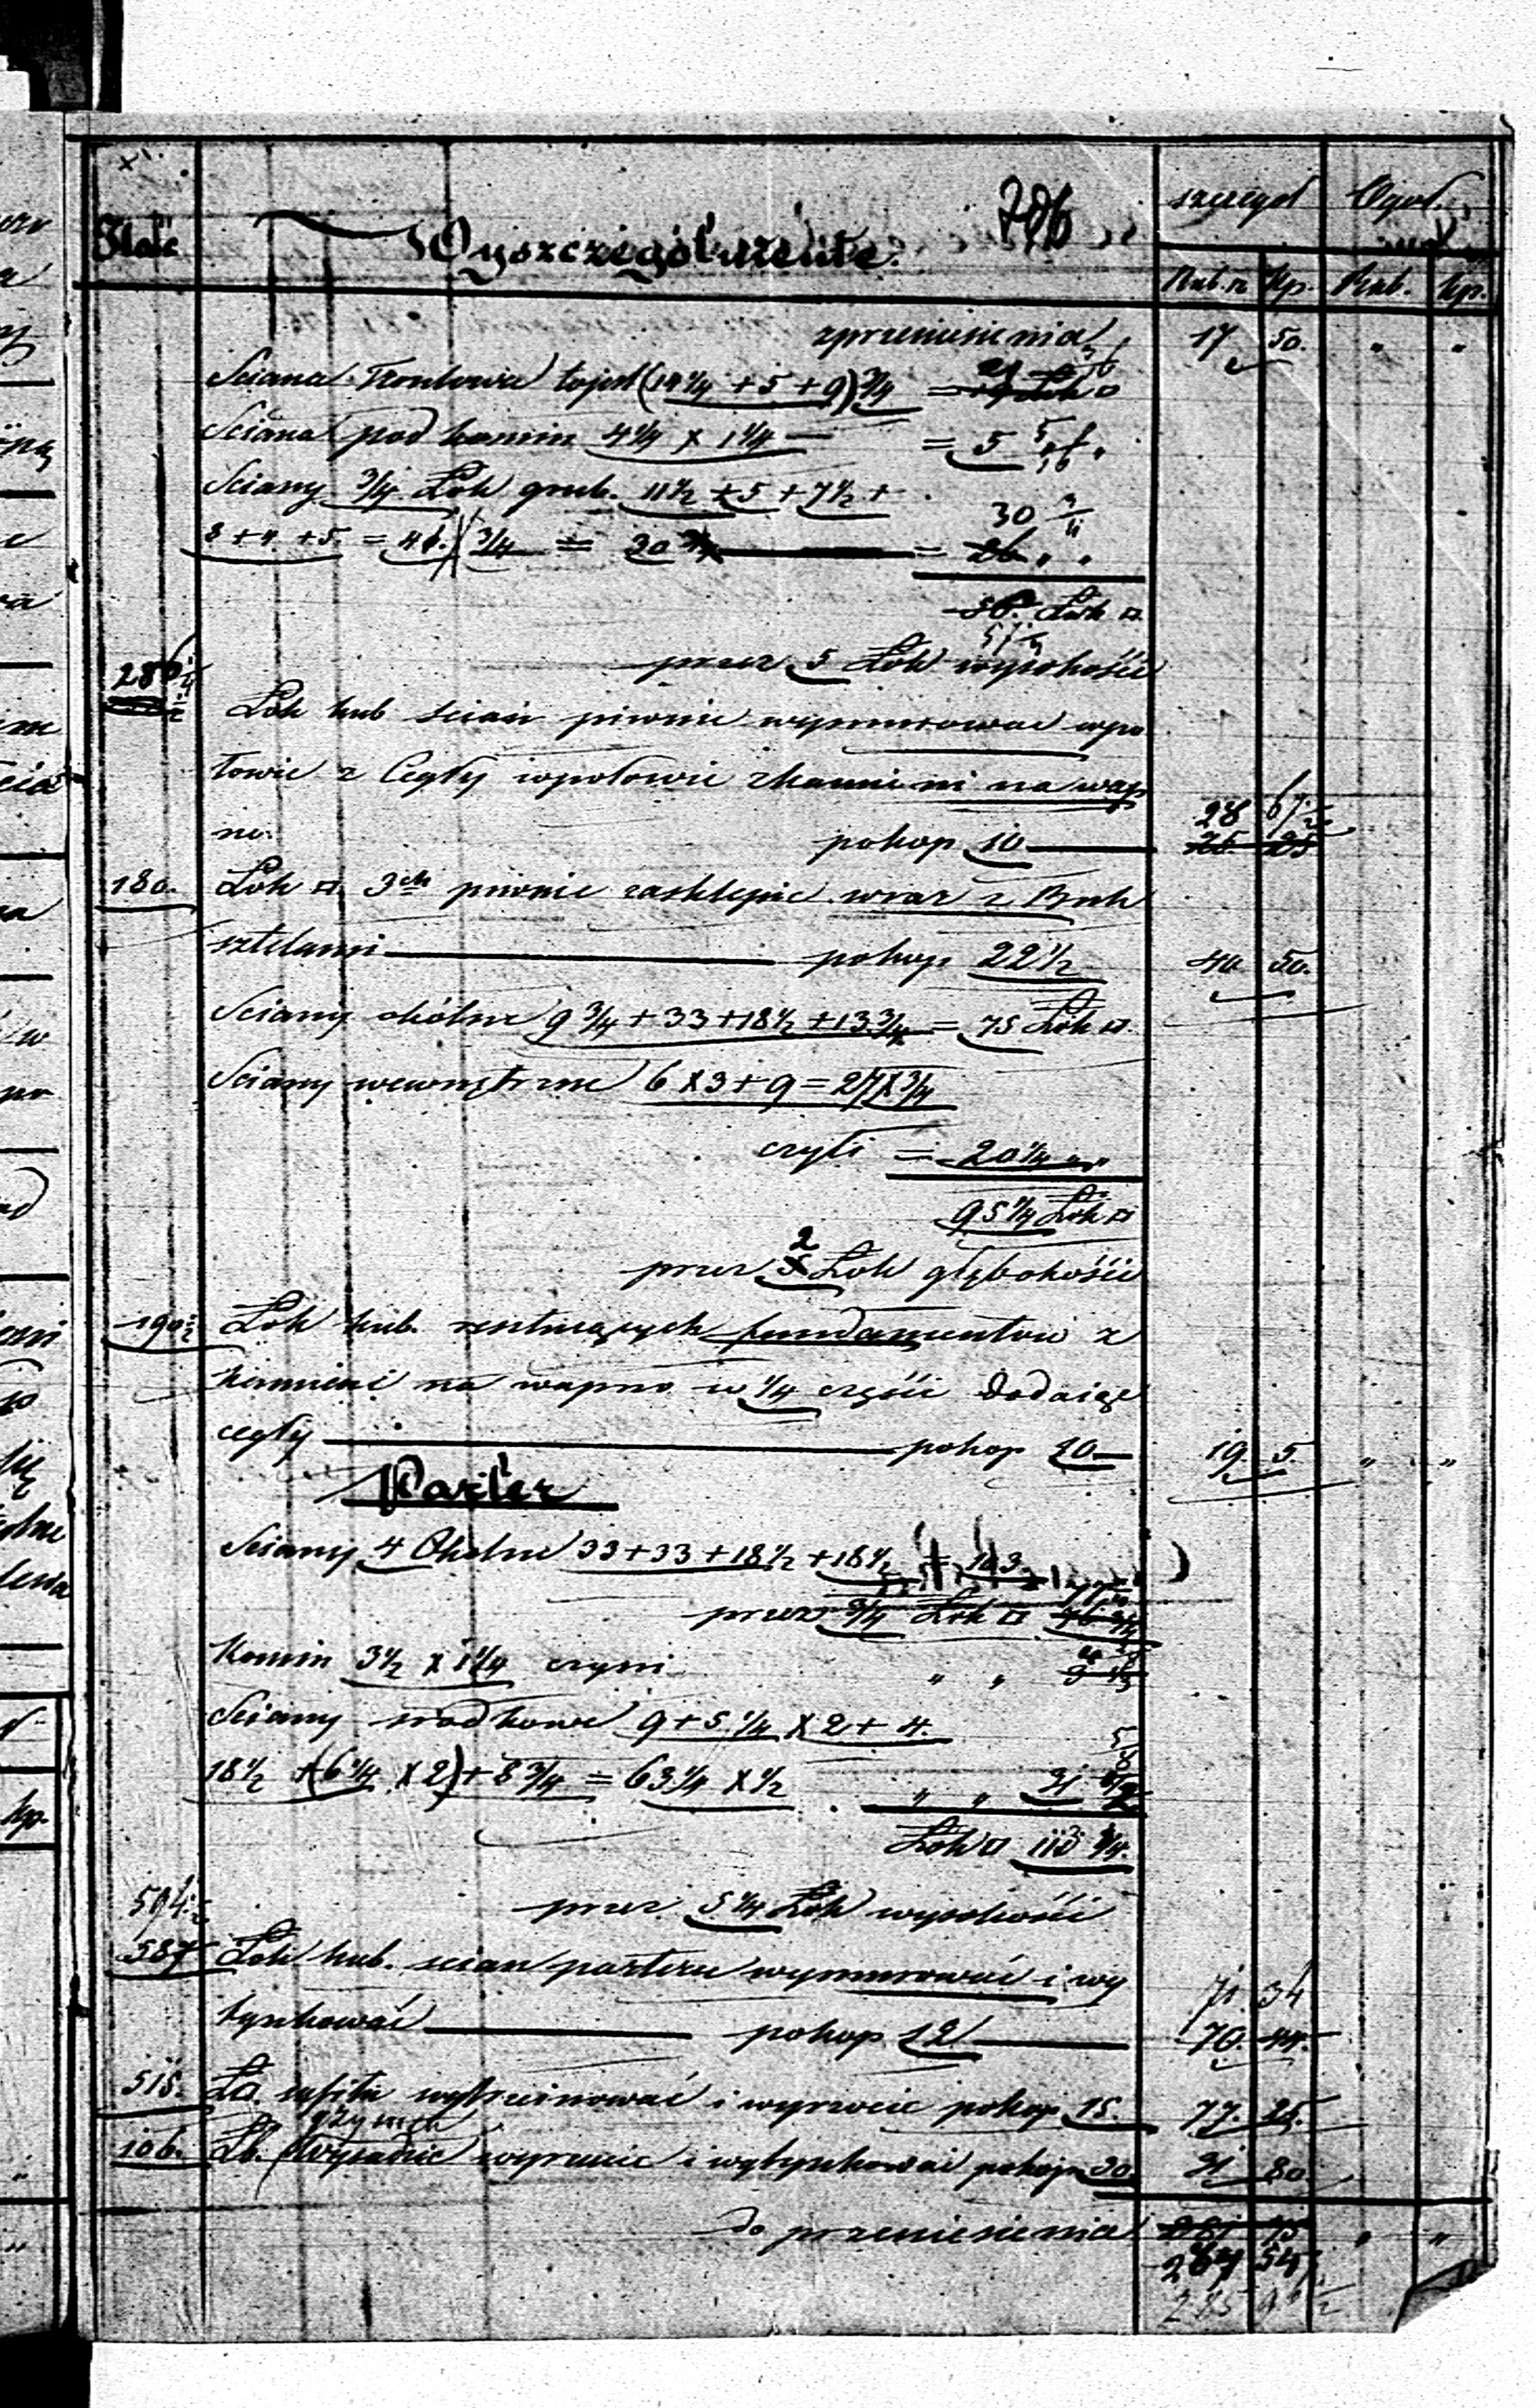 286
szczegół Ogół.
Ilość Wyszczególnienie.
Rub. sr. Kp. Rub. Kp.
z przeniesienia 17 50. " "
Sciana Frontowa to jest (14 1/4 + 5 + 9) 3/4 = 21 Łok □
Sciana pod komin 4 1/4 x 1 1/4 = 5 5/16 "
Sciany 3/4 Łok grub. 11 1/2 + 5 + 7 1/2 +
8 + 4 + 5. = 41. x 3/4 = 30 3/4 = 30 3/4
26 " "
56. Łok □.
57
przez 5 Łok wysokości
286
Łok kub scian piwnic wymurowac wpo
łowie z Cegły wpołowie z kamieni na wap
no. pokop 10 28 67 1/2
180. Łok □. 3ch piwnic zasklepic wraz z Buk
sztelami pokop 22 1/2 40 50.
Sciany okólne 9 3/4 + 33 + 18 1/2 + 13 3/4 = 75 Łok □.
Sciany wewnętrzne 6 x 3 + 9 = 27 x 3/4
czyli = 20 1/4 " "
95 1/4 Łok □
przez 2 Łok głębokości
190 1/2 Łok kub. resztujących fundamentów z
kamieni na wapno w 1/4 części dodając
cegły pokop 10 19 5. " "
Parter
Sciany 4 Okolne 33 + 33 + 18 1/2 + 18 1/2 = 103
przez 3/4 Łok □ 77 1/4
Komin 3 1/2 x 1 1/4 czyni " " 4 3/8
Sciany srodkowe 9 + 5 1/4 x 2 + 4.
18 1/2 + (6 1/4 x 2) + 8 3/4 = 63 1/4 x 1/2 " " 31 5/8
Łok □ 113 1/4.
przez 5 1/4 Łok wysokości
594 1/2
587 Łok kub. scian parteru wymurować i wy
71. 34
tynkować pokop 12 70. 44.
515. Ł□. sufitu wytrzcinować i wyrzucic pokop 15. 77. 25.
gzymsu
106. Łb. wyrzucic i wytynkować pokop 30. 31 80.
do przeniesienia 281 75 " "
284 54
285 91 1/2